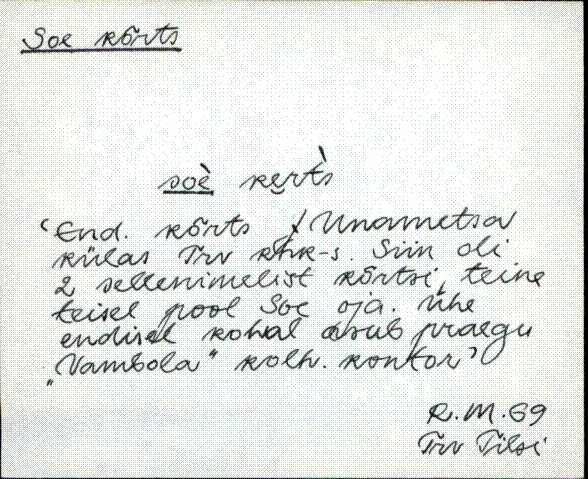 Soe kõrts
soè ke̮rt̀s
‘End. kõrts Unametsa
külas Trv khk-s. Siin oli
2 sellenimelist kõrtsi, teine
teisel pool Soe oja. Ühe
endisel kohal asub praegu
„Vambola” kolh. kontor’
R.M.69
Trv Tilsi